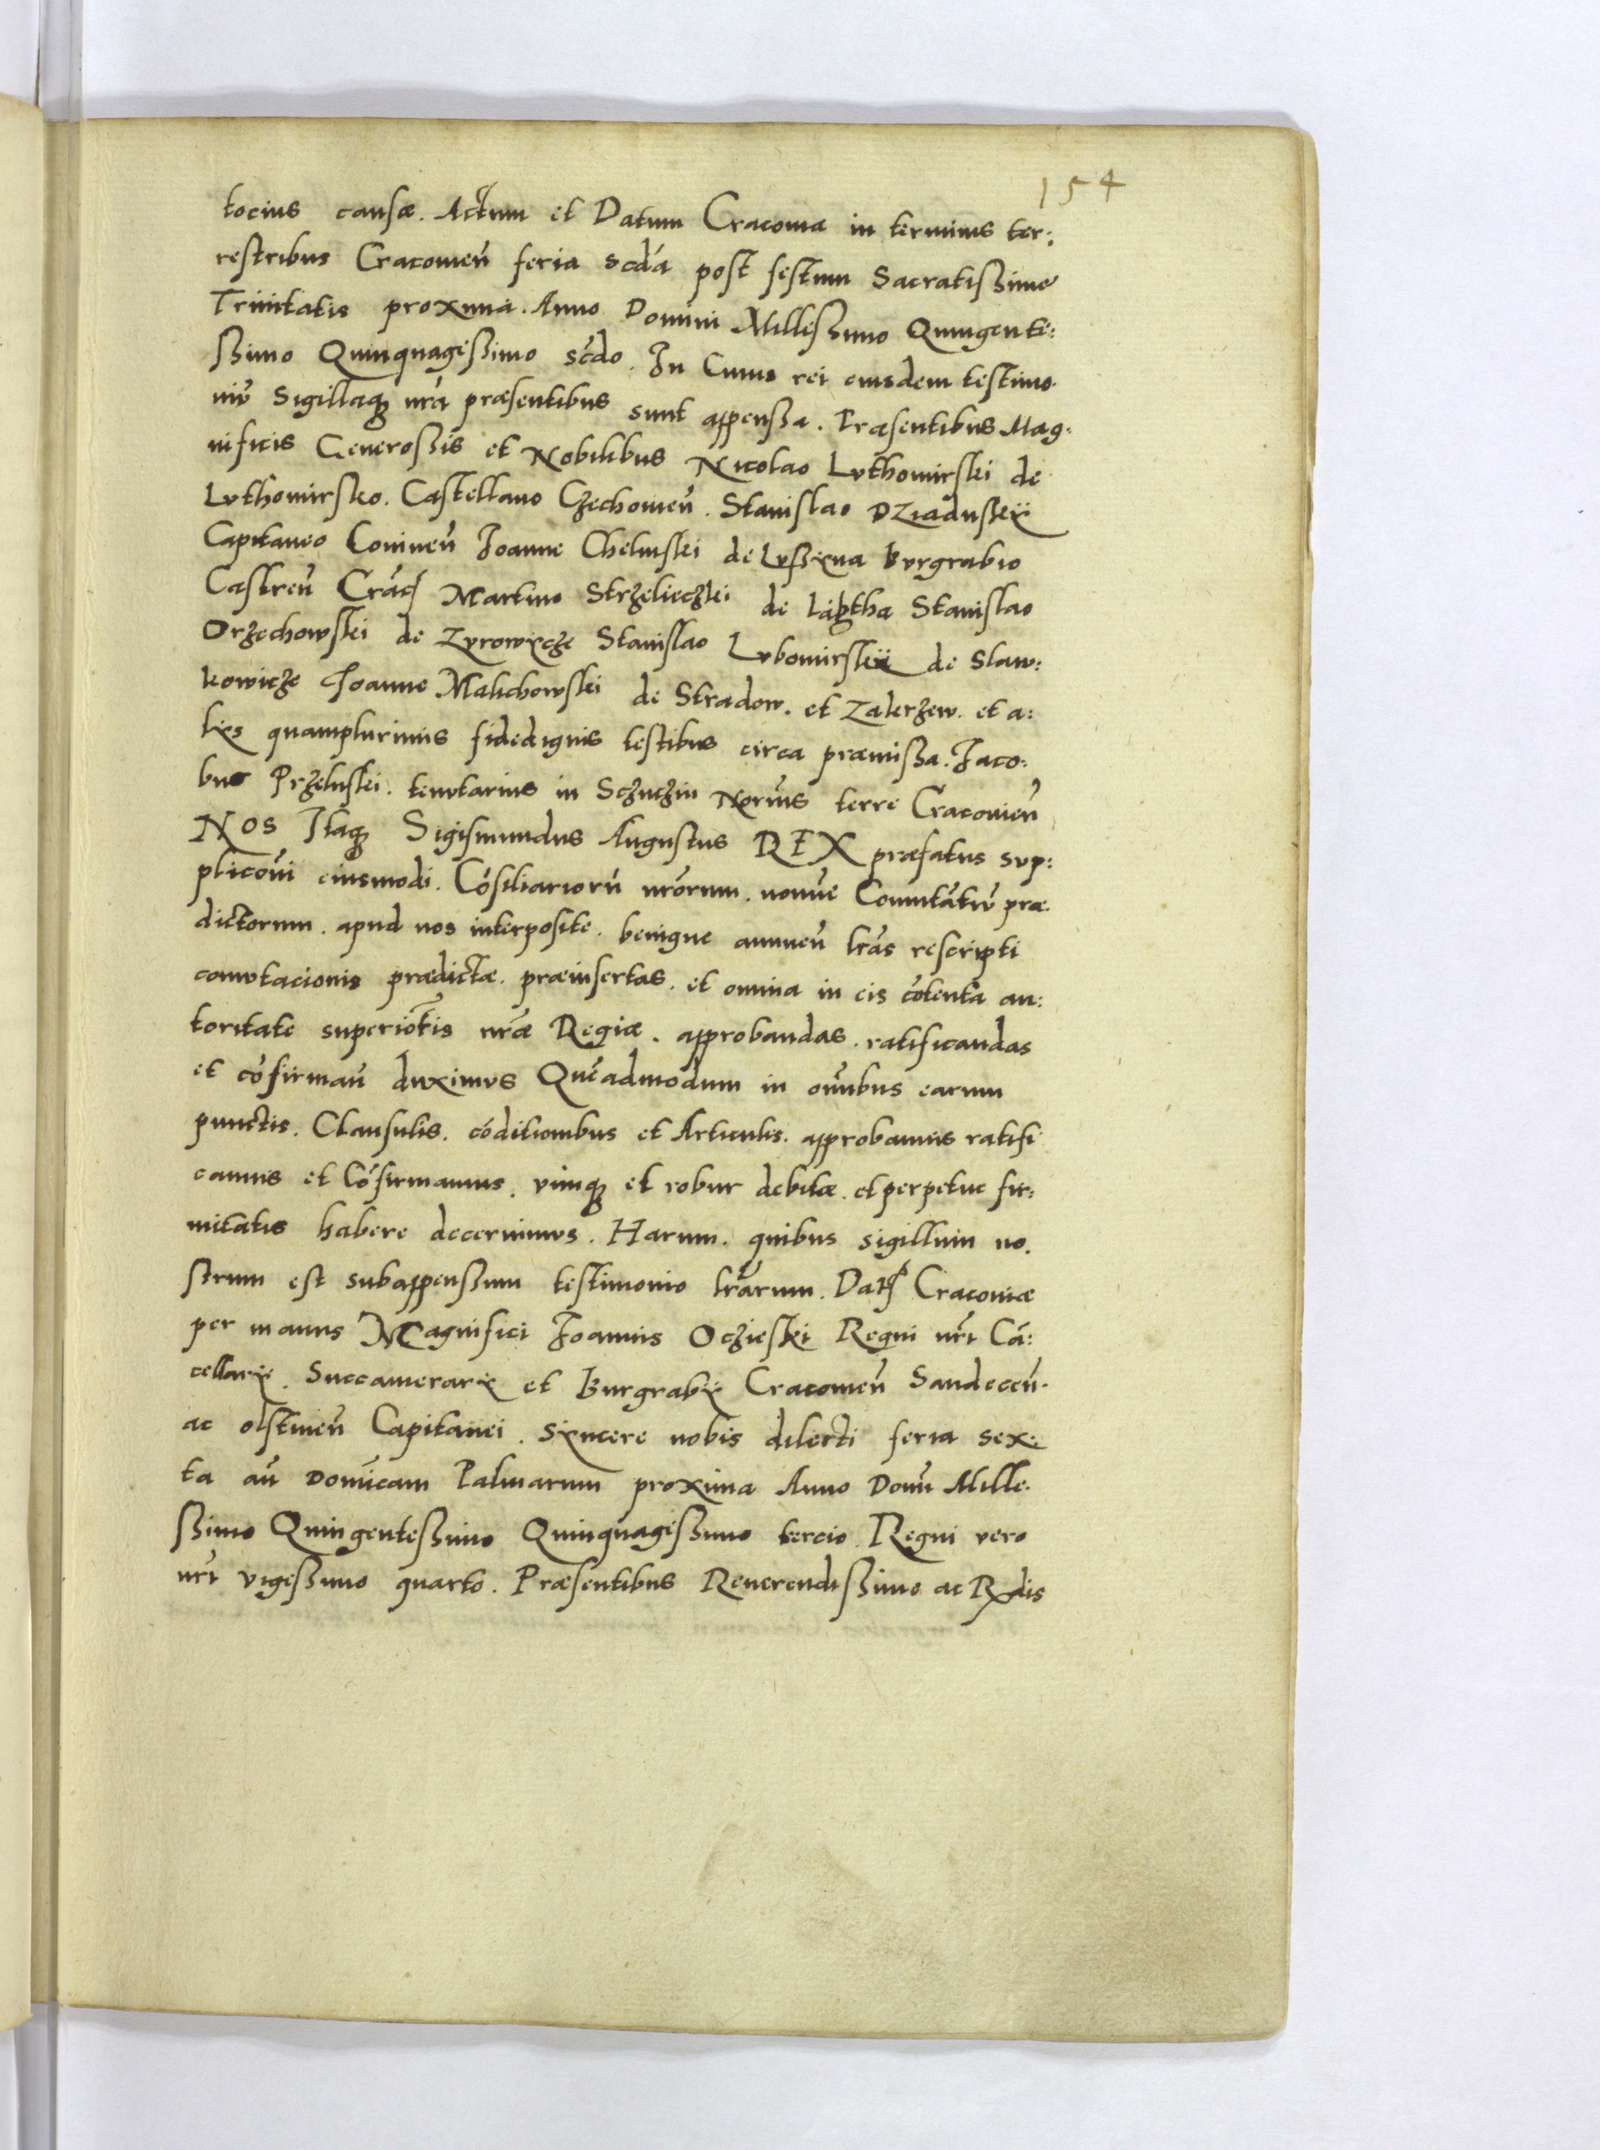 154
tocius causæ. Actum et Datum Cracouia in terminis ter:
restribus Cracouień feria scdá post festum Sacratissime
Trinitatis proxima. Anno Domini Millessimo Quingente:
ssimo Quinquagessimo scdo. In Cuius rei eiusdem testimo.
niū Sigillaqꝫ nrá præsentibus sunt appenssa. Præsentibus Mag.
nificis Generossis et Nobilibus Nicolao Lvthomirski de
Lvthomirsko. Castellano Czechouień. Stanislao Dziadvskÿ
Capitaneo Conineń Joanne Chelmski de Bvrgrabio
Castreń Crać Martino Strzelieczki de Stanislao
Orzechowski de Zyrowicze Stanislao Lvbomirskÿ de Slaw:
kowicze Joanne Malichowski de Stradow. et Zakrzew. et a:
lijs quamplurimis fidedignis testibus circa præmissa. Jaco:
bus Przeluski. tenvtarius in Sczuczin Norius terre Cracouień
NOS Itaqꝫ Sigismundus Augustus REX præfatus svp:
pliconi eiusmodi. Cósiliariorū nrórum. nomine Comutátiū præ.
dictorum. apud nos interposite. benigne annueń lrás rescripti
comvtacionis prædictæ. præinsertas. et omnia in eis cótenta au:
toritate superiótis nræ Regiæ. approbandas. ratificandas
et cófirmań duximvs Quéadmodum in oíbus earum
punctis. Clausulis. códitionibus et Articulis. approbamus ratifi
camus et Cófirmamus. vimqꝫ et robur debitæ. et perpetue fir:
mitatis habere decernimvs. Harum. quibus sigillum no.
strum est subappenssum testimonio lrárum. Dat Cracouiæ
per manus Magnifici Joannis Oczieski Regni nri Cá:
cellarÿ. Succamerarÿ et Burgrabÿ Cracouień Sandeceń.
ac olstineń Capitanei. Syncere nobis dilecti feria sex:
ta ań Domícam Palmarum proxima Anno Domí Mille.
ssimo Quingentessimo Quinquagessimo tercio. Regni vero
nri vigessimo quarto. Præsentibus Reuerendissimo ac Rdis